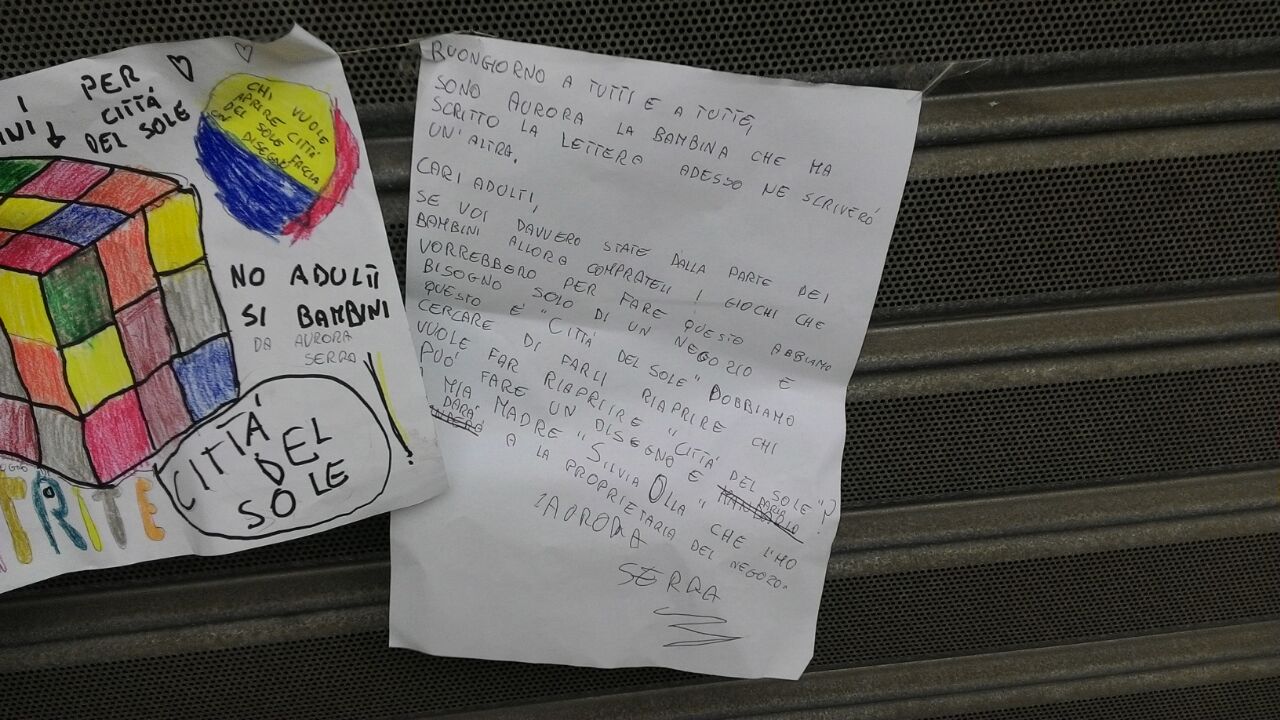 I PER
CITTÁ
DEL SOLE
CHI VUOLE
APRIRE CITTÀ
DEL SOLE FACCIA
UN DISEGNO
NO ADULTI
SI BAMBINI
DA AURORA
SERRA
CITTÁ
DEL
SOLE
TRITE
BUONGIORNO A TUTTI E A TUTTE,
SONO AURORA LA BAMBINA CHE MA
SCRITTO LA LETTERA ADESSO NE SCRIVERÓ
UN'ALTRA.
CARI ADULTI,
SE VOI DAVVERO STATE DALLA PARTE DEI
BAMBINI ALLORA COMPRATELI I GIOCHI CHE
VORREBBERO PER FARE QUESTO ABBIAMO
BISOGNO SOLO DI UN NEGOZIO E
QUESTO E' "CITTÁ DEL SOLE" DOBBIAMO
CERCARE DI FARLI RIAPRIRE CHI
VUOLE FAR RIAPRIIRE "CITTÁ DEL SOLE"?
PUO' FARE UN DISEGNO E DARLO
A MIA MADRE "SILVIA OLLA" CHE LMO
DARÁ A LA PROPRIETARIA DEL NEGOZO.
AURORA
SERRA